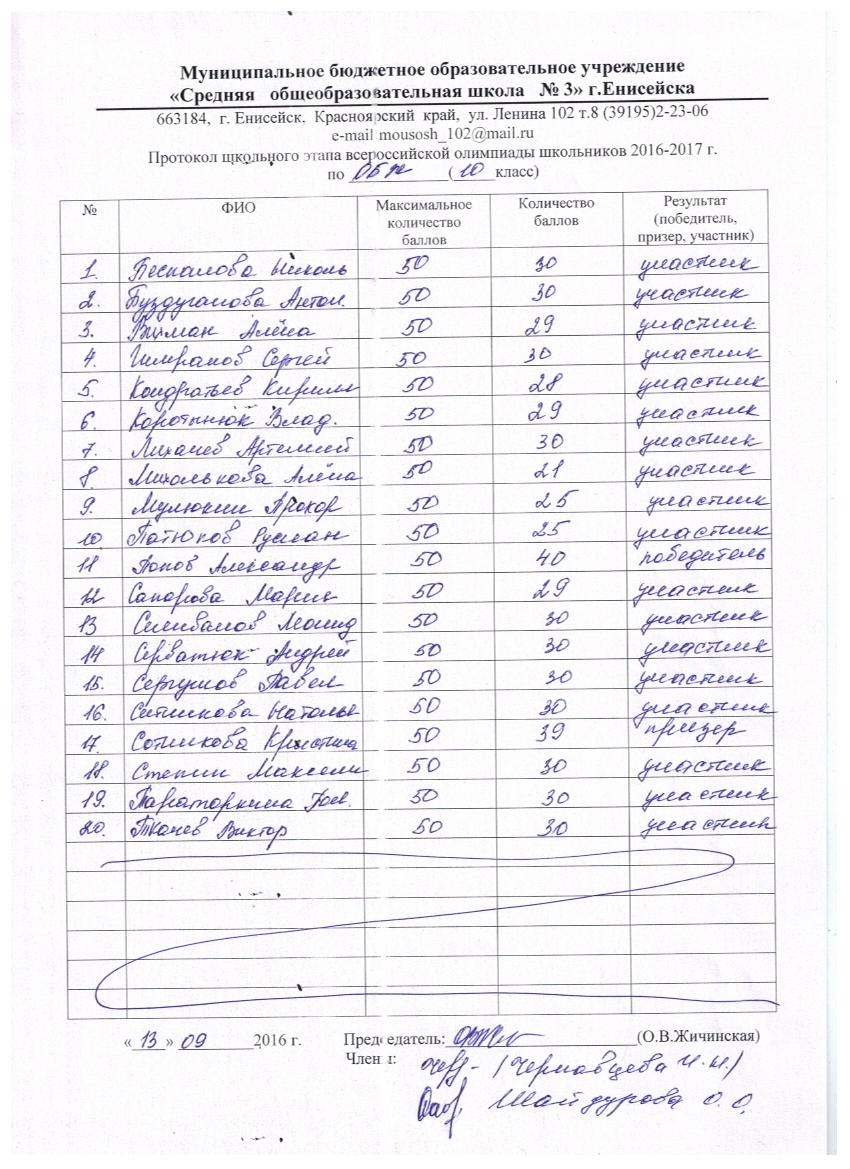 Муниципальное бюджетное образовательное учреждение
«Средняя общеобразовательная школа № 3» г.Енисейска
663184, г. Енисейск, Красноярский край, ул. Ленина 102 т.8 (39195)2-23-06
e-mail mousosh_102@mail.ru
Протокол щкольного этапа всероссийской олимпиады школьников 2016-2017 г.
по ОБЖ (10 класс)
№ ФИО Максимальное количество баллов Количество баллов Результат (победитель, призер, участник)
1. Беспалова Николь 50 30 участник
2. Буздуганова Антон. 50 30 участник
3. Алёна 50 29 участник
4. Гимранов Сергей 50 30 участник
5. Кондратьев Кирилл 50 28 участник
6. Коротынюк Влад. 50 29 участник
7. Лихачев Артемий 50 30 участник
8. Михолькова Алёна 50 21 участник
9. Мулюкин Прохор 50 25 участник
10 Патюков Руслан 50 25 участник
11 Попов Александр 50 40 победитель
12 Сапарова Мария 50 29 участник
13 50 30 участник
14 Серватюк Андрей 50 30 участник
15. Сергушов Павел 50 30 участник
16. Ситникова Наталья 50 30 участник
17. Сотникова Кристина 50 39 призер
18. Степин Максим 50 30 участник
19. Параторкина 50 30 участник
20. Ткачев Виктор 50 30 участник
«13» 09 2016 г. Председатель: (О.В.Жичинская)
Члены: (Чернавцева И.И.)
Шайдурова О.О.